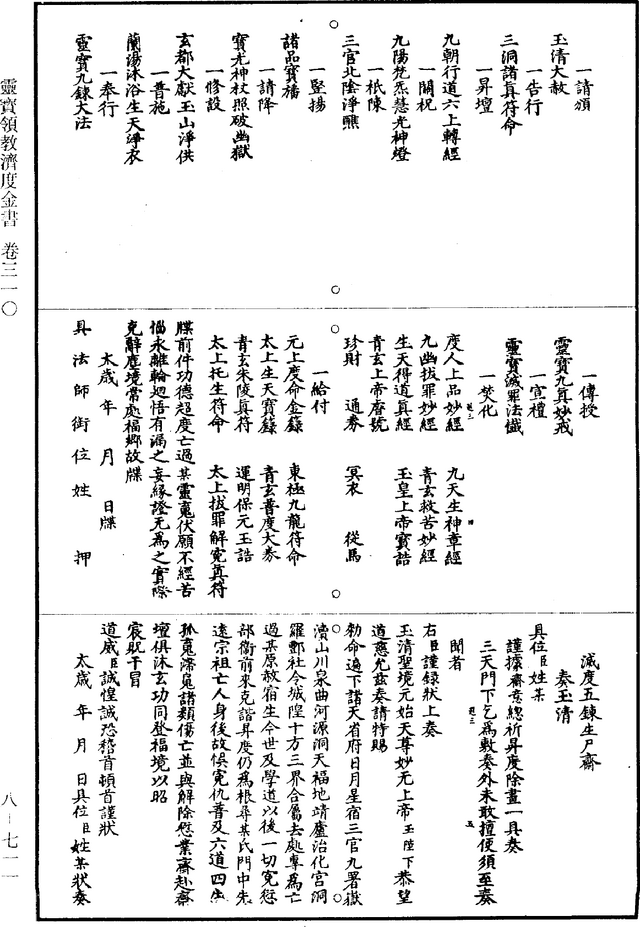 一請頒
玉清大赦
一告行
三洞諸真符命
一昇壇
九朝行道六上轉經
一關祝
九陽梵炁慧光神燈
一祇陳
三官北陰淨醮
一堅揚
諸品寶旛
一請降
寶光神杖照破幽獄
一修設
玄都大獻玉山淨供
一普施
蘭湯沐浴生天淨衣
一奉行
靈寶九鍊大法
一傳授
靈寶九真妙戒
一宣禮
靈寶滅罪法懺
一焚化
度人上品妙經 九天生神章經
九幽拔罪妙經 青玄救苦妙經
生天得道真經 玉皇上帝寶誥
青玄上帝尊號
珍財 通券 冥衣 從馬
一給付
元上度命金籙 東極九龍符命
太上生天寶籙 青玄普度大券
青玄朱陵真符 運明保元玉誥
太上托生符命 太上拔罪解冤真符
牒前件功德超度亡過某靈魂伏願不經苦
惱永離輪迴悟有漏之妄緣證无為之實際
克辭塵境常處福鄉故牒
太歲 年 月 日牒
具法師銜位姓 押
滅度五鍊生尸齋
奏玉清
具位臣姓某
謹據齋意總祈昇度除畫一具奏
三天門下乞為敷奏外未敢擅便須至奏
聞者
右臣謹錄狀上奏
玉清聖境元始天尊妙无上帝玉陛下恭望
道慈允茲奏請特賜
勅命遍下諸天省府日月星宿三官九署嶽
瀆山川泉曲河源洞天福地靖廬治化宮洞
羅酆社令城隍十方三界合屬去處專為亡
過某原赦宿生今世及學道以後一切冤愆
部衛前來克諧昇度仍為根尋某氏門中先
遠宗祖亡人身後故悞冤仇普及六道四生
孤魂滯魄諸類傷亡並與解除愆業齋赴齋
壇俱沐玄功同登福境以昭
道威臣誠惶誠恐稽首頓首謹狀
太歲 年 月 日具位臣姓某狀奏
靈寶領教濟度金書 卷三一〇
八—七一一